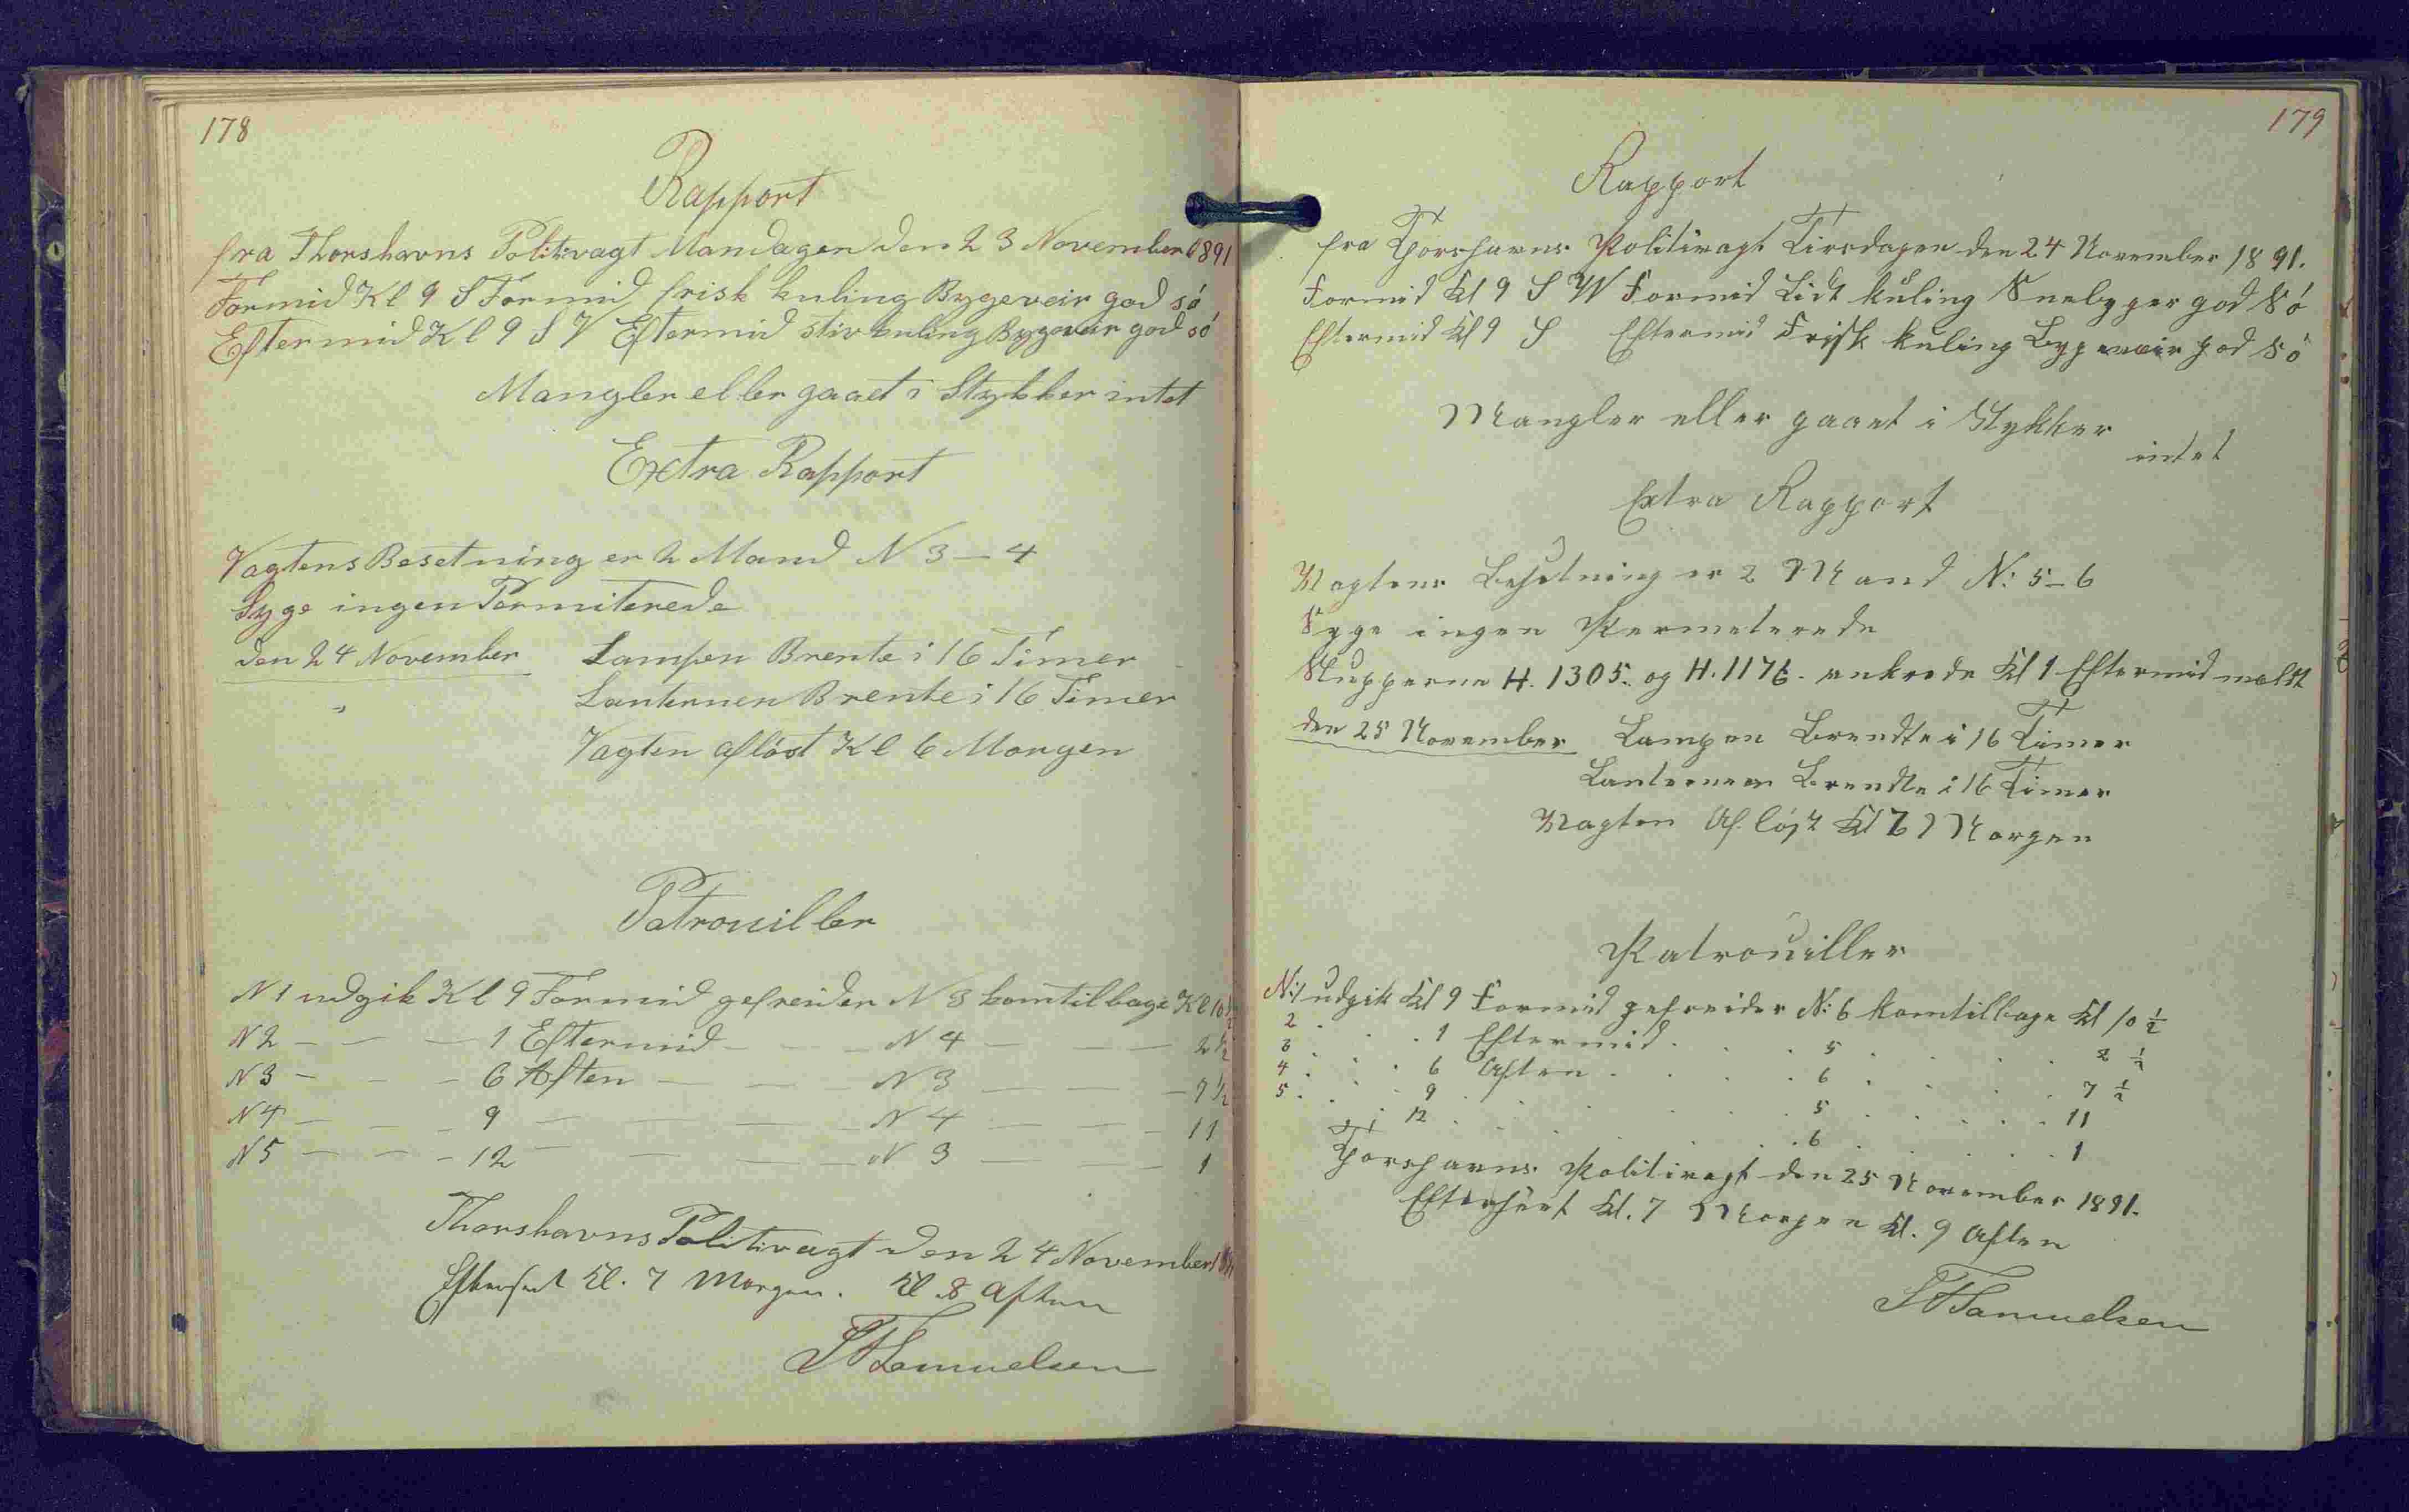 178
Rapport
fra Thorshavns Politivagt Mandagen den 23 November 1891
Formid Kl 9 S Formid frisk kuling Bygeveir god só
Eftermid Kl 9 S V Eftermid stiv kuling Bygeveir god só
Mangler eller gaaet i Stykker intet
Extra Rapport
Vagtens Besetning er 2 Mand N 3 - 4
Syge ingen Permiterede
den 24 November Lampen Brente i 16 Timer
" Lanternen Brente i 16 Timer
Vagten aflóst Kl 6 Morgen
Patrouiller
N 1 udgik Kl 9 Formid gefreider N 3 kom tilbage Kl 10 ½
N 2 — — — 1 Eftermid — — — N 4 — — — 2 ½
N 3 — — — 6 Aften — — — N 3 — — — 7 ½
N 4 — — — 9 — — — N 4 — — — 11
N 5 — — — 12 — — — N 3 — — — 1
Thorshavns Politivagt den 24 November 1891
Efterseet Kl. 7 Morgen. Kl 8 Aften
Samuelsen
179
Rapport
fra Thorshavns Politivagt Tirsdagen den 24 November 1891.
Formid Kl 9 S W Formid Lidt kuling Snebyger god Só
Eftermid Kl 9 S Eftermid Frisk kuling Bygeveir god Só
Mangler eller gaaet i Stykker
intet
Extra Rapport
Vagtens Besetning er 2 Mand N: 5-6
Syge ingen Permeterede
Slupperne H. 1305. og H. 1176. ankrede Kl 1 Eftermid meldt
den 25 November Lampen Brendte i 16 Timer
Lanternen Brendte i 16 Timer
Vagten Aflóst Kl 6 Morgen
Patrouiller
N: 1 udgik Kl 9 Formid gefreider N: 6 kom tilbage Kl 10 ½
2 . . . 1 Eftermid . . . 5 . . . 2 ½
3 . . . 6 Aften . . . 6 . . . 7 ½
4 . . . 9 . . . 5 . . . 11
5 . . . 12 . . . 6 . . . 1
Thorshavns Politivagt den 25 November 1891.
Efterseet Kl. 7 Morgen Kl. 9 Aften
Samuelsen